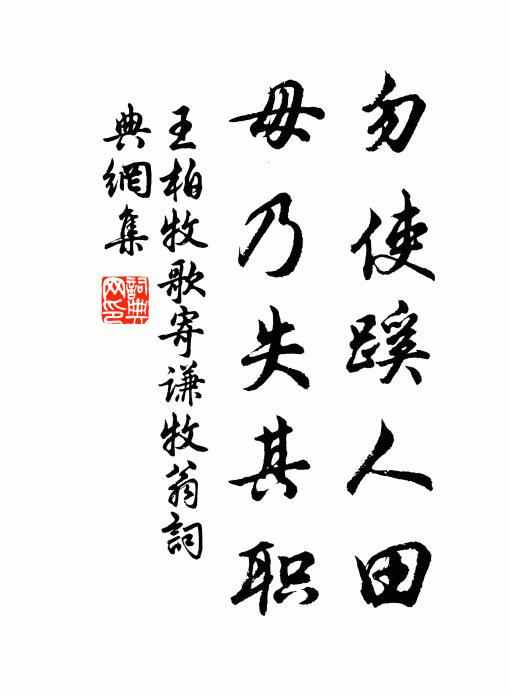 勿使蹊人田
毋乃失其职
王柏牧歌寄谦牧翁詞
典網集
詞典
网印